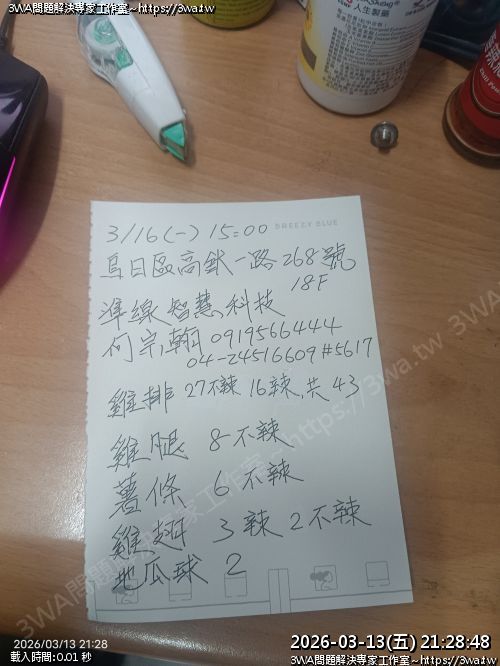 3WA問題解決專家工作室~https://3wa.tw
人生製藥
BREEZY BLUE
3/16(一) 15:00
烏日區高鉄一路268號
18F
準線智慧科技
何宗翰 0919566444
04-24516609#5617
雞排 27不辣 16辣,共43
雞腿 8不辣
薯條 6不辣
雞翅 3辣 2不辣
地瓜球 2
2026/03/13 21:28
載入時間:0.01 秒
2026-03-13(五) 21:28:48
3WA問題解決專家工作室~https://3wa.tw